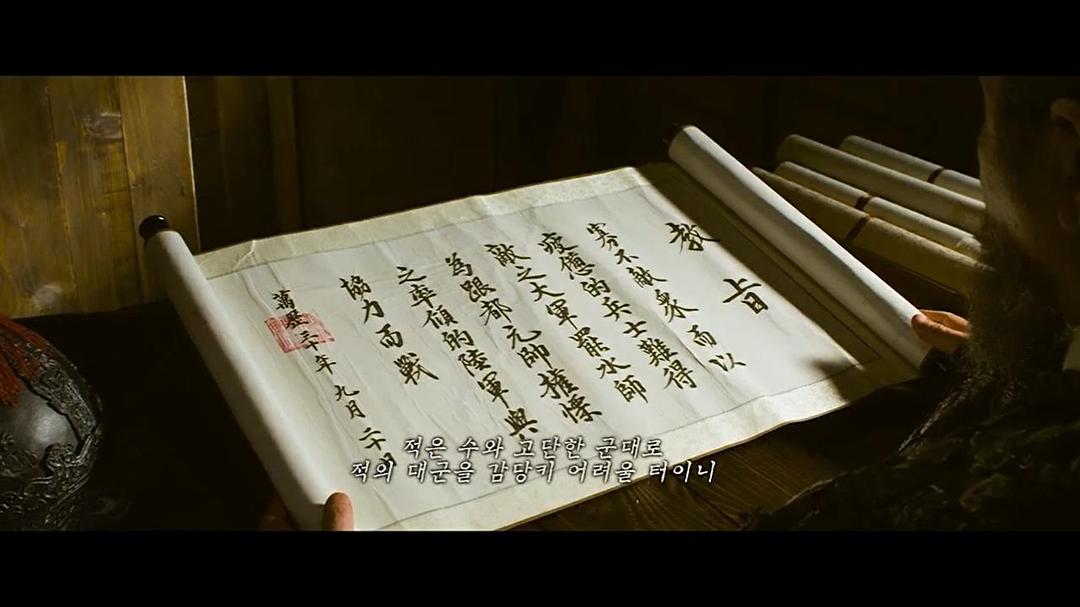 教旨
寡不敵衆而以
疲憊的兵士難得
敵之大軍罷水師
為跟都元帥權慄
之率領的陸軍與
協力而戰
萬歷三十年 九月二十
적은 수와 고단한 군대로
적의 대군을 감당키 어려울 터이니